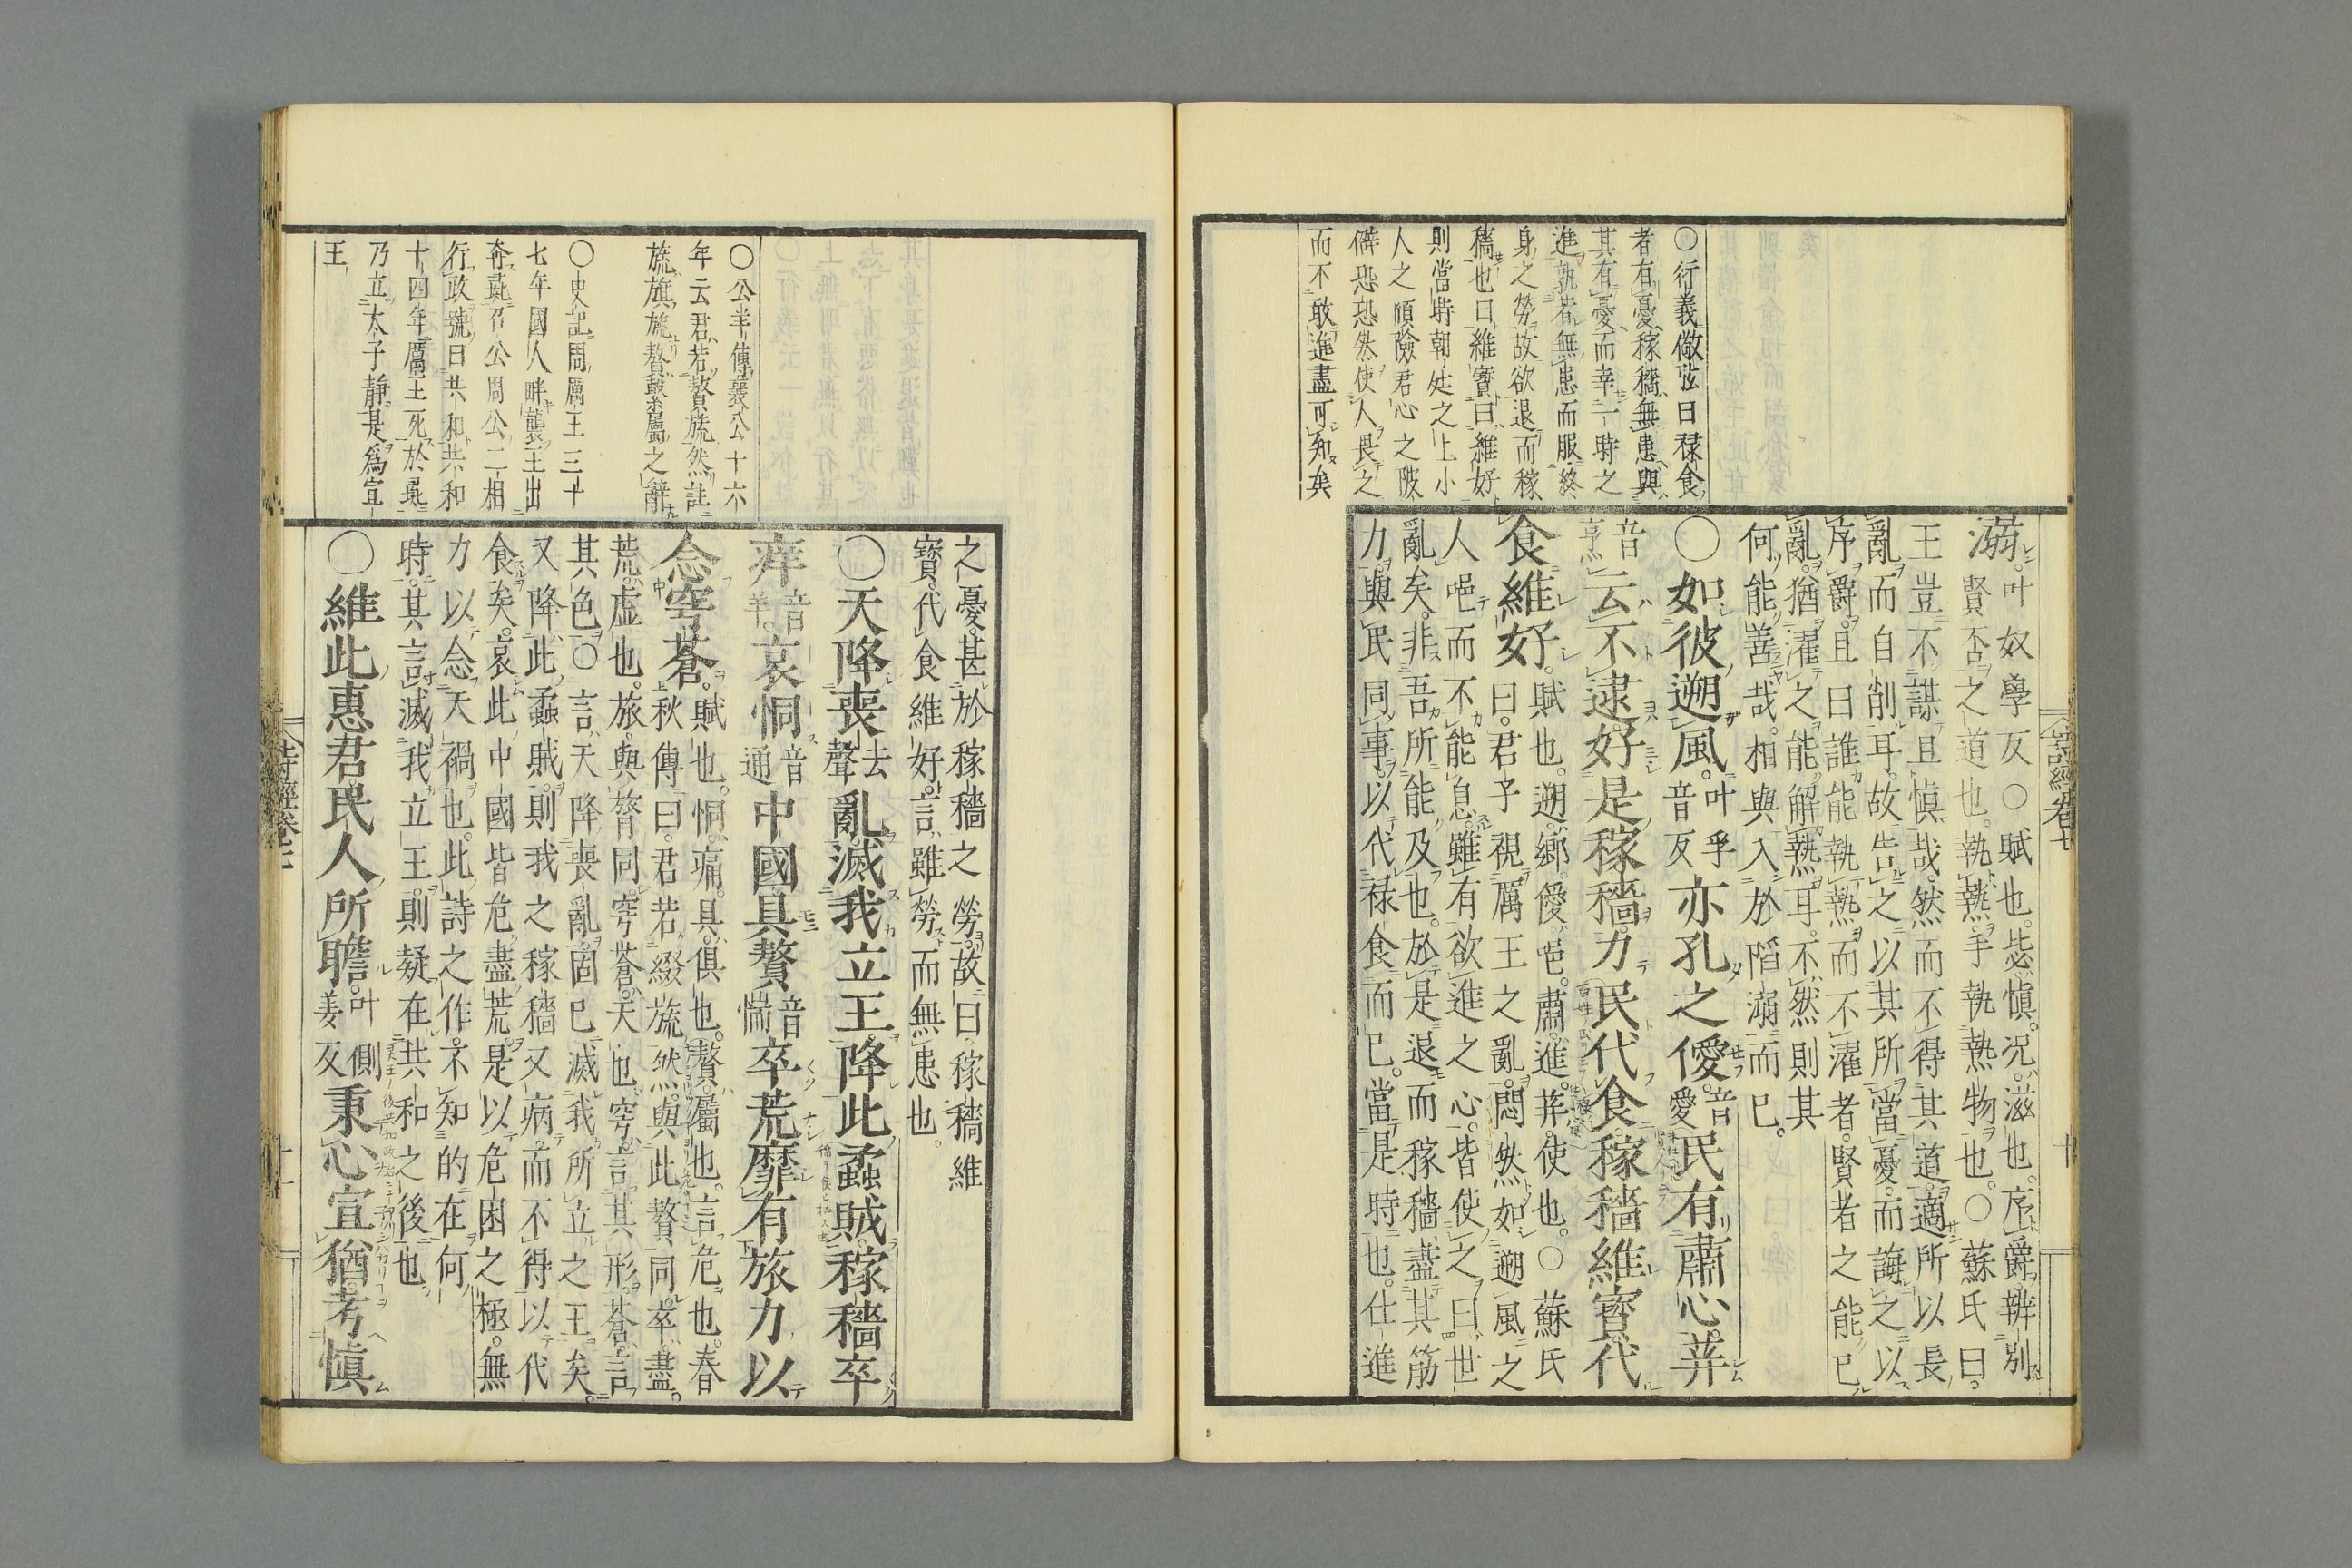 詩經卷七
十
○衍義儆弦曰祿食
者有憂稼穡無患與
其有憂而幸一時之
進孰若無患而服終
身之勞故欲退而稼
穡也曰維寶曰維好
則當時朝廷之上小
人之傾險君心之陂
僻恐恐然使人畏之
而不敢進盡可知矣
溺叶奴學反○賦也毖愼況滋也序爵辨別
賢否之道也執熱手執熱物也○蘇氏曰
王豈不謀且愼哉然而不得其道適所以長
亂而自削耳故告之以其所當憂而誨之以
序爵且曰誰能執熱而不濯者賢者之能已
亂猶濯之能解熱耳不然則其
何能善哉相與入於陷溺而已
○如彼遡風叶孚音反亦孔之僾音愛民有肅心荓
音亨云不逮好是稼穡力民代食稼穡維寶代
食維好賦也遡鄉僾唈肅進荓使也○蘇氏
曰君子視厲王之亂悶然如遡風之
人唈而不能息雖有欲進之心皆使之曰世
亂矣非吾所能及也於是退而稼穡盡其筋
力與民同事以代祿食而已當是時也仕進
之憂甚於稼穡之勞故曰稼穡維
寶代食維好言雖勞而無患也
○天降喪去聲亂滅我立王降此蟊賊稼穡卒
痒音羊哀恫音通中國具贅音惴卒荒靡有旅力以
念穹蒼賦也恫痛具俱也贅屬也言危也春
秋傳曰君若綴旒然與此贅同卒盡
荒虛也旅與膂同穹蒼天也穹言其形蒼言
其色○言天降喪亂固已滅我所立之王矣
又降此蟊賊則我之稼穡又病而不得以代
食矣哀此中國皆危盡荒是以危困之極無
力以念天禍也此詩之作不知的在何
時其言滅我立王則疑在共和之後也
○維此惠君民人所瞻叶側姜反秉心宣猶考愼
○公羊傳襄公十六
年云君若贅旒然註
旒旗旒贅繫屬之辭
○史記周厲王三十
七年國人畔襲王出
奔彘召公周公二相
行政號曰共和共和
十四年厲王死於彘
乃立太子靜是爲宣
王
十一